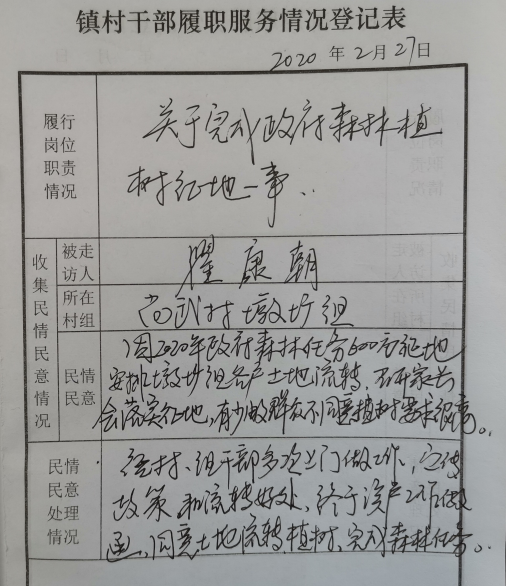 镇村干部履职服务情况登记表
2020 年 2 月 27 日
履行
岗位
职责
情况
关于完成政府森林植
树征地一事..
收集民情民意情况
被走
访人
瞿康朝
所在
村组
尚武村墩坊组
民情
民意
因2020年政府森林任务600亩征地
安排墩坊组各户土地流转,召开家长
会落实征地,有少的群众不同意植树要求
民情
民意
处理
情况
经村、组干部多次上门做工作,宣传
政策和流转好处,终于该户工作做
通,同意土地流转植树,完成森林任务。